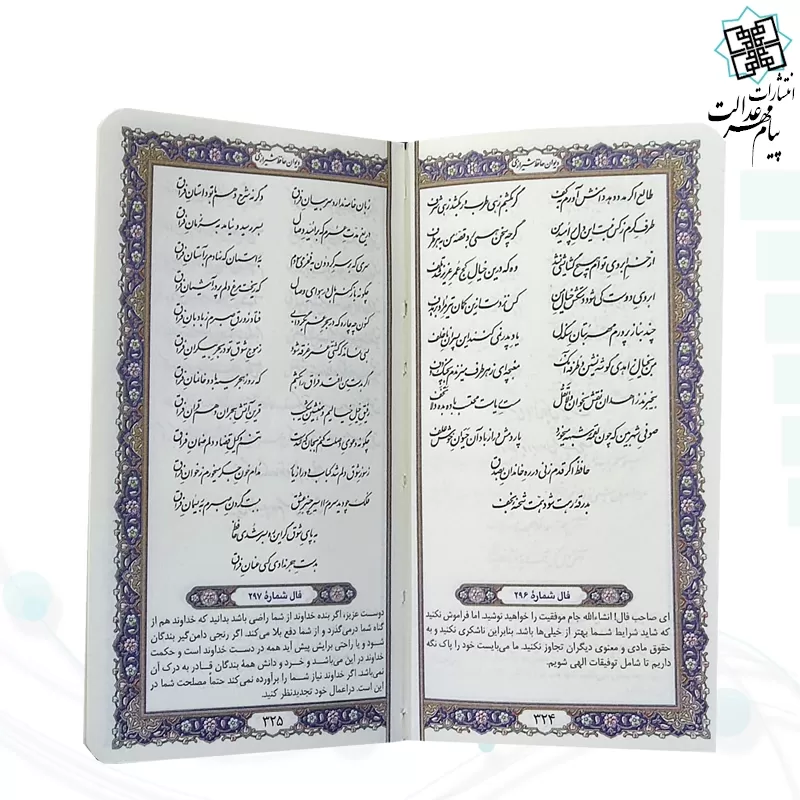 انتشارات
پیام مهر عدالت
دیوان حافظ شیرازی
طالع اگر مدد دهد دامنش آورم به کف گر بکشم زهی طرب ور بکشد زهی شرف
طرف کرم ز کس نبست این دل پر امید من گرچه سخن همی برد قصه من به هر طرف
از خم ابروی توام هیچ گشایشی نشد وه که درین خیال کج عمر عزیز شد تلف
ابروی دوست کی شود دستکش خیال من کس نزدست ازین کمان تیر مراد بر هدف
چند بناز پرورم مهر بتان سنگدل یاد پدر نمی کنند این پسران ناخلف
من بخیال زاهدی گوشه نشین و طرفه آنک مغبچه ای ز هر طرف میزندم بچنگ و دف
بیخبرند زاهدان نقش بخوان و لاتقل مست ریاست محتسب باده بده و لاتخف
صوفی شهر بین که چون لقمه شبهه میخورد پاردمش دراز باد آن حیوان خوش علف
حافظ اگر قدم زنی در ره خاندان بصدق
بدرقه رهت شود همت شحنه نجف
فال شمارهٔ ۲۹۶
ای صاحب فال! انشاءالله جام موفقیت را خواهید نوشید. اما فراموش نکنید
که شاید شرایط شما بهتر از خیلی‌ها باشد. بنابراین ناشکری نکنید و به
حقوق مادی و معنوی دیگران تجاوز نکنید. ما می‌بایست خود را پاک نگه
داریم تا شامل توفیقات الهی شویم.
۳۲۴
دیوان حافظ شیرازی
زبان خامه ندارد سر بیان فراق وگرنه شرح دهم با تو داستان فراق
دریغ مدت عمرم که بر امید وصال بسر رسید و نیامد بسر زمان فراق
سری که بر سر گردون بفخر می سودم به راستان که نهادم بر آستان فراق
چگونه باز کنم بال در هوای وصال که ریخت مرغ دلم پر در آشیان فراق
کنون چه چاره که در بحر غم بگردابی فتاد زورق صبرم ز بادبان فراق
بسی نماند که کشتی عمر غرقه شود ز موج شوق تو در بحر بیکران فراق
اگر بدست من افتد فراق را بکشم که روز هجر سیه باد و خانمان فراق
رفیق خیل خیالیم و همنشین شکیب قرین آتش هجران و هم قران فراق
چگونه دعوی وصلت کنم بجان که شدست تنم وکیل قضا و دلم ضمان فراق
ز سوز شوق دلم شد کباب دور از یار مدام خون جگر میخورم ز خوان فراق
فلک چو دید سرم را اسیر چنبر عشق ببست گردن صبرم به ریسمان فراق
به پای شوق گر این ره بسر شدی حافظ
بدست هجر ندادی کسی عنان فراق
فال شمارهٔ ۲۹۷
دوست عزیز، اگر بنده خداوند از شما راضی باشد بدانید که خداوند هم از
گناه شما درمی‌گذرد و از شما دفع بلا می‌کند. اگر رنجی دامن‌گیر بندگان
شود و یا راحتی برایش پیش آید همه در دست خداوند است و حکمت
خداوند در این می‌باشد و خرد و دانش همهٔ بندگان قادر به درک آن
نمی‌باشد. اگر خداوند نیاز شما را برآورده نمی‌کند حتماً مصلحت شما در
این است. دراعمال خود تجدیدنظر کنید.
۳۲۵